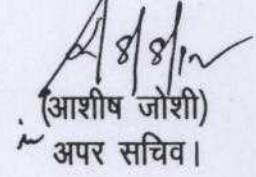 (आशीष जोशी)
अपर सचिव।